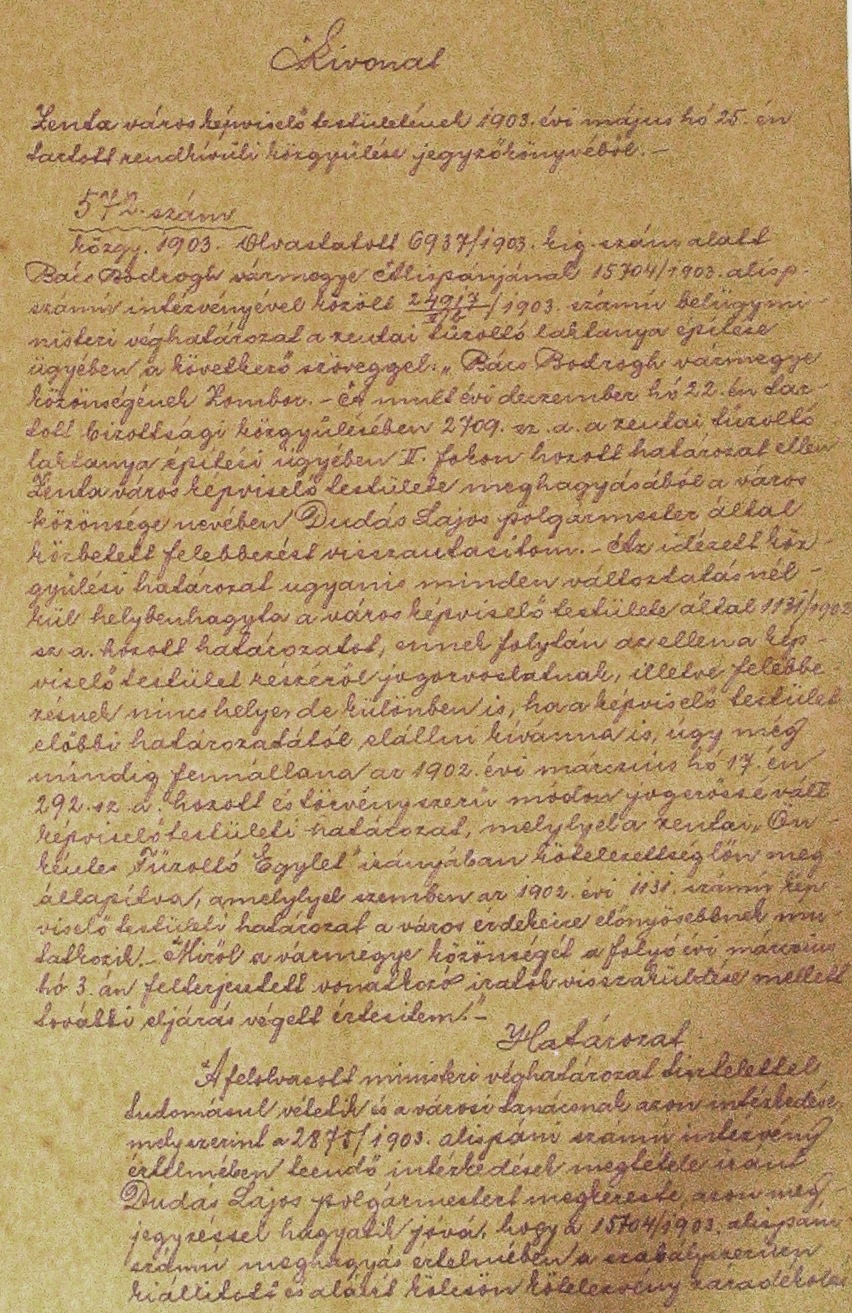 Kivonat
Zenta város képviselő testületének 1903. évi május hó 25. én
tartott rendkívüli közgyűlése jegyzőkönyvéből. —
572. szám
közgy. 1903. Olvastatott 6937/1903. kig. szám alatt
Bács Bodrogh vármegye Alispánjának 15704/1903. alisp.
számú intézvényével közölt 24917/1903. számú belügymi-
nisteri véghatározat a zentai tűzoltó laktanya építése
ügyében a következő szöveggel: „Bács Bodrogh vármegye
közönségének Zombor. – A mult évi deczember hó 22. én tar-
tott bizottsági közgyűlésében 2709. sz. a. a zentai tűzoltó
laktanya építési ügyében II. fokon hozott határozat ellen
Zenta város képviselő testülete meghagyásából a város
közönsége nevében Dudás Lajos polgármester által
közbetett felebbezést visszautasítom. – Az idézett köz-
gyűlési határozat ugyanis minden változtatás nél-
kül helybenhagyta a város képviselő testülete által 1131/1902
sz. a. hozott határozatot, ennek folytán az ellen a kép-
viselő testület részéről jogorvoslatnak, illetve felebbe-
zésnek nincs helye, de különben is, ha a képviselő testület
előbbi határozatától elállni kívánna is, úgy még
mindig fennállana az 1902. évi március hó 17. én
292. sz. a. hozott és törvényszerű módon jogerőssé vált
képviselő testületi határozat, melylyel a zentai „Ön-
kéntes Tűzoltó Egylet" irányában kötelezettség lőn meg
állapítva, amelylyel szemben az 1902. évi 1131. számú kép-
viselő testületi határozat a város érdekeire előnyösebbnek mu-
tatkozik. – Miről a vármegye közönségét a folyó évi március
hó 3. án felterjesztett vonatkozó iratok visszaküldése mellett
további eljárás végett értesítem." –
Határozat
A felolvasott ministeri véghatározat tisztelettel
tudomásul vétetik és a városi tanácsnak azon intézkedése
mely szerint a 2875/1903. alispáni számú intézvény
értelmében teendő intézkedések megtétele iránt
Dudás Lajos polgármestert megkereste, azon meg
jegyzéssel hagyatik jóvá, hogy a 15704/1903. alispáni
számú meghagyás értelmében a szabályszerűen
kiállított és aláírt kölcsön kötelezvény záradékolás